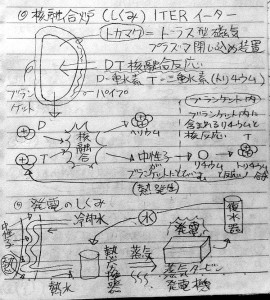 核融合炉(しくみ) ITER イーター
トカマク=トーラス型磁気
プラズマ閉じ込め装置
DT核融合反応
D=重水素 T=三重水素(トリチウム)
ブランケット
パイプ
ブランケット内
ブランケット内に
含まれるリチウムと
核反応
D
T
核融合
ヘリウム
中性子
リチウム
トリチウム
ブランケット
(熱発生)
発電のしくみ
冷却水
水
復水器
発電
中性子
熱
熱水
熱交換器
蒸気
蒸気タービン
発電機